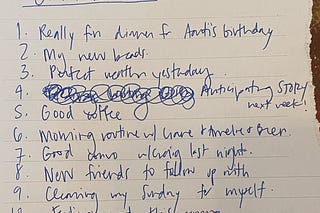 1. Really fun dinner for Aarti's birthday
2. My new beads.
3. Perfect weather yesterday.
4. Anticipating STORY
next week!
5. Good coffee
6. Morning routine w/ &
7. Good convo w/ Craig last night.
8 New friends to follow up with
9. Cleaning my Sunday to myself.